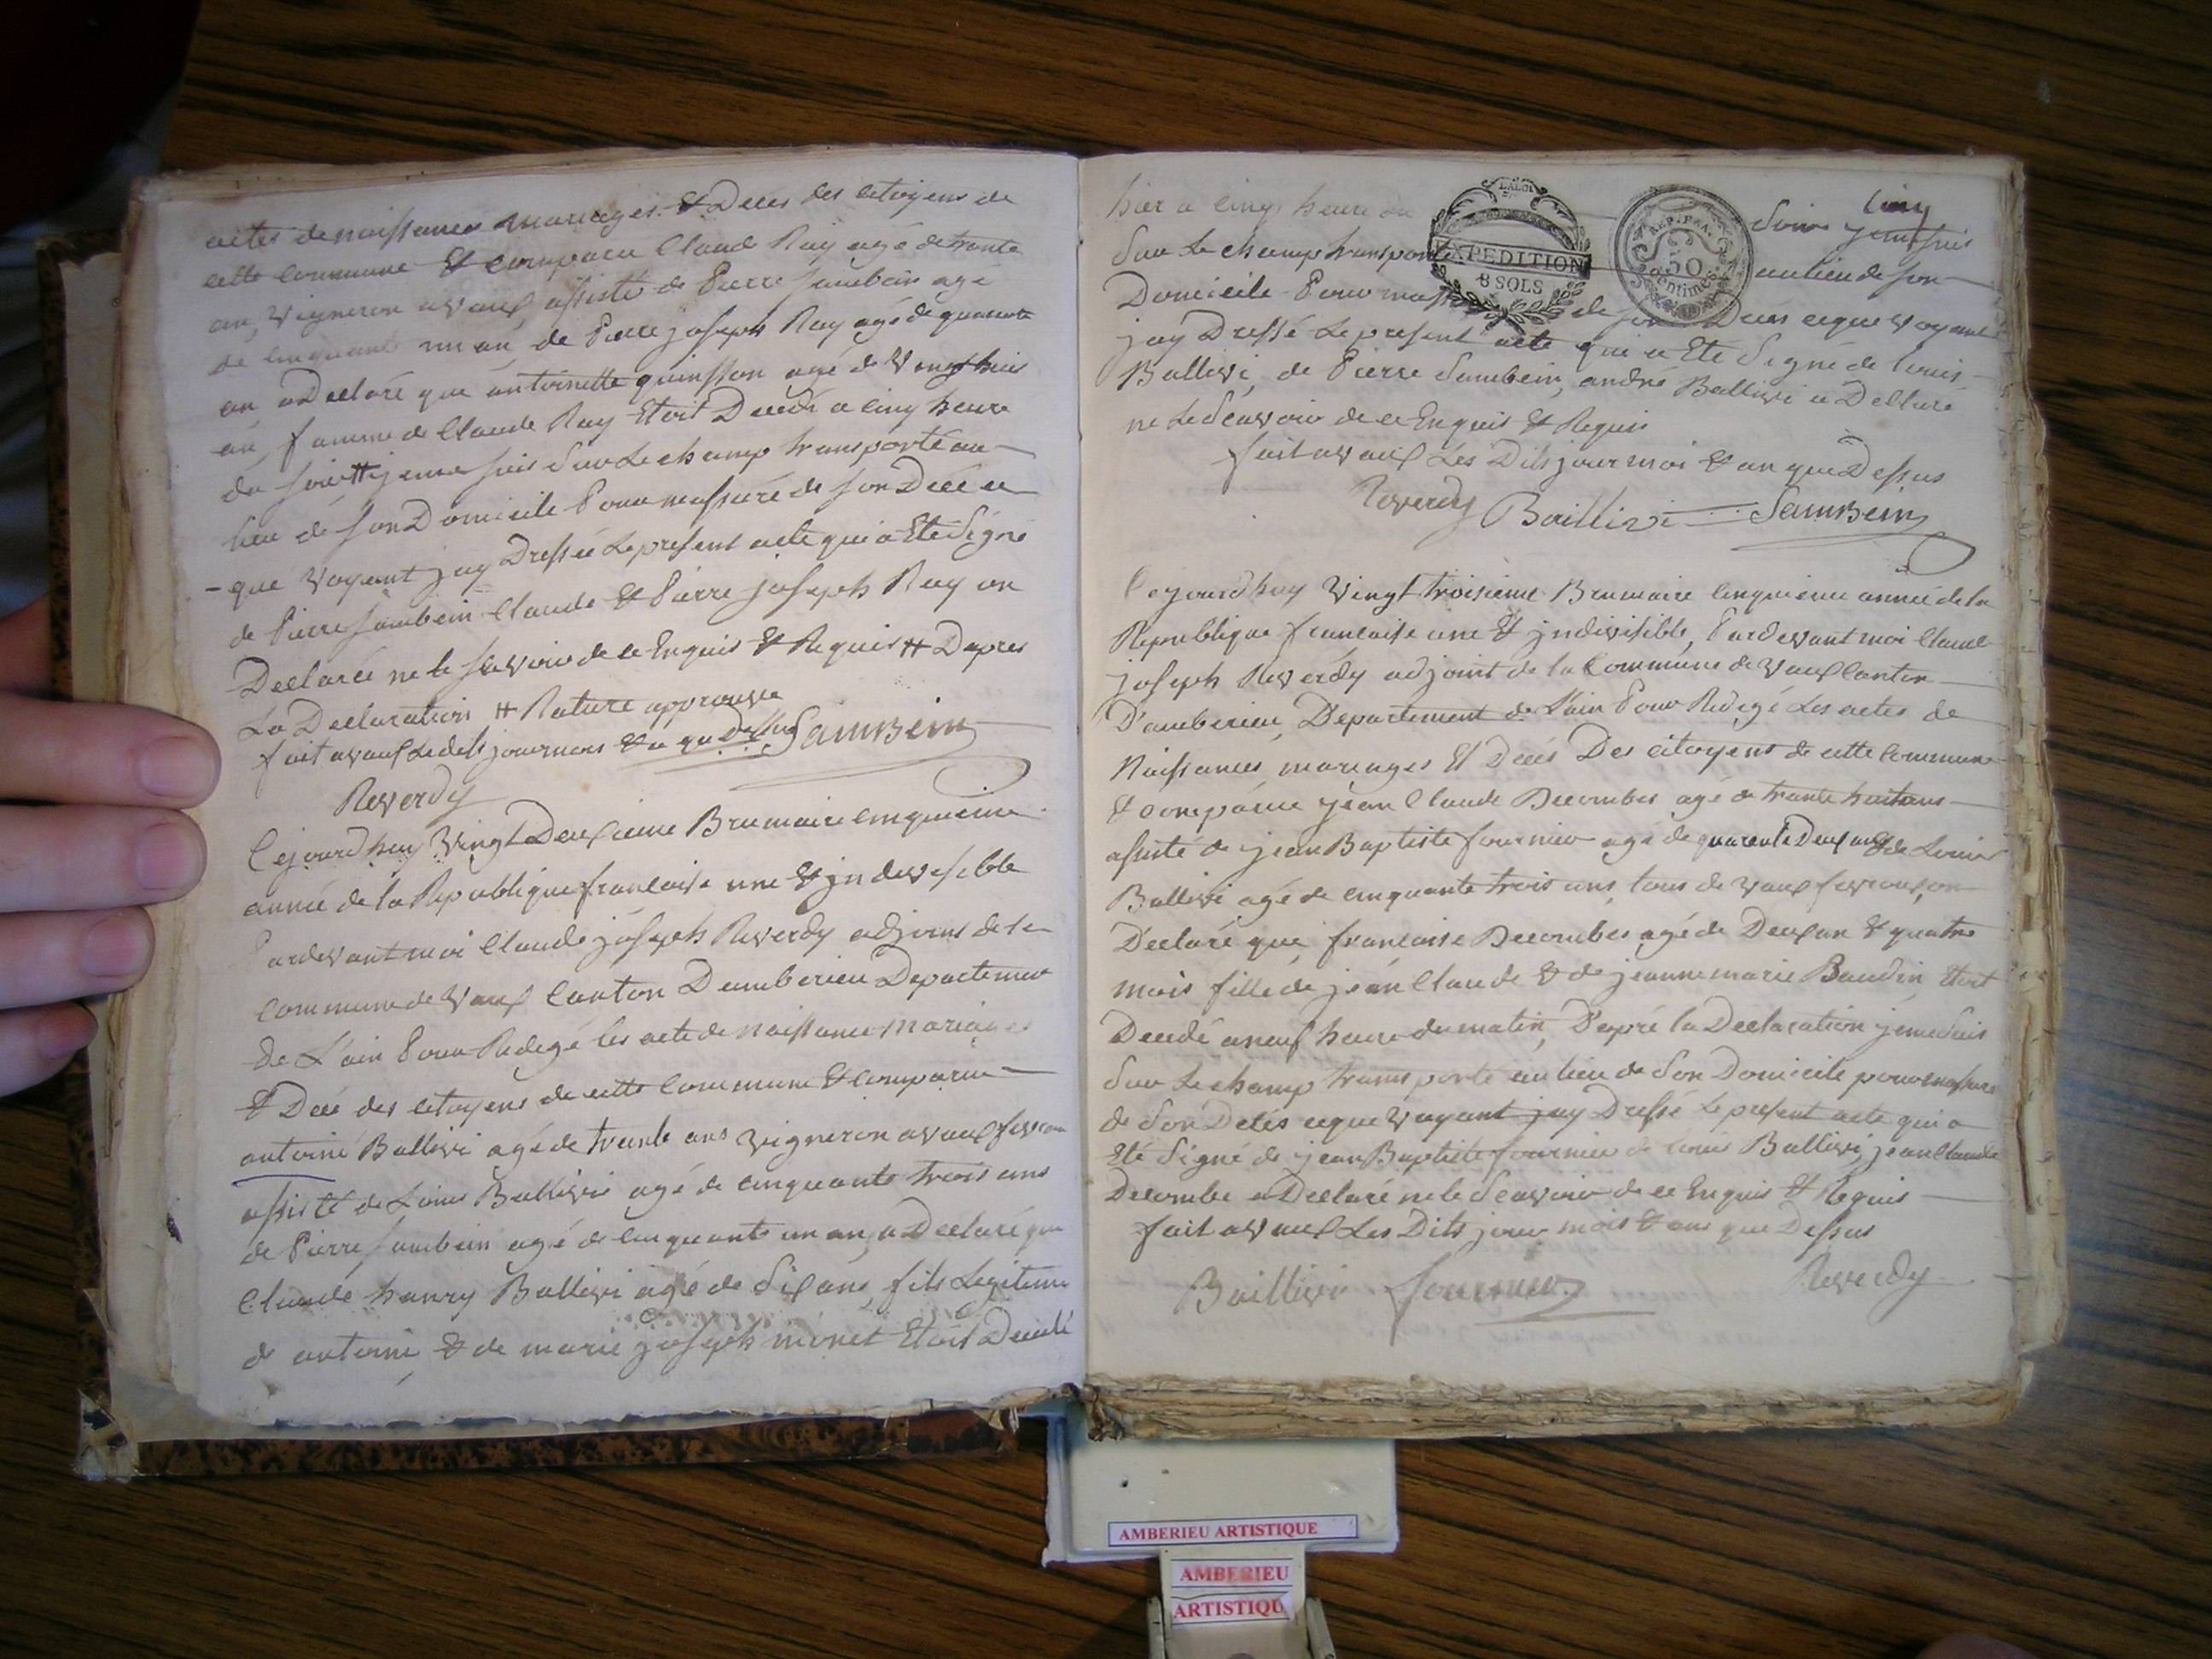 actes de naissances mariages & Deces des citoyens de
cette commune & comparu Claude Ray agé de trante
an, vigneron a vaux assisté de Pierre Sambein agé
de cinquante un an, de Pierre joseph Ray agé de quarante
an a Declaré que antoinette quinsson agé de vingt huis
an famme de Claude Ray Etoit Decedé a cinq heure
du soir # je me suis Sur Le champ transporté au
lieu de son Domicile Pour massuré de son Décé ce
- que voyant jay Dressé Le present acte qui a Eté Signé
de Pierre Sambein Claude & Pierre joseph Ray on
Declarée ne le scavoir de ce Enquis & Requis # Dapres
La Declaration # Rature approuvé
fait a vaux Le dits jour mois & a que Dessus Sambein
Reverdy
Cejourd huy vingt Deuxieme Brumaire cinquieme
année de la Republique francaise une & jndevisible
Pardevant moi Claude joseph Reverdy adjoint de la
Commune de vaux Canton Damberieu Departement
De L'ain Pour Redegé les acte de naissance Mariages
& Décé des citoyens de cette Commune & comparu
antoine Ballivi agé de trante ans vigneron a vaux
assisté de Louis Ballivi agé de cinquante trois ans
de Pierre Sambein agé de cinquante un an, a Declaré que
Claude hanry Ballivi agé de Six ans, fils Legitime
de antoine & de marie joseph monet Etoit Decedé
hier a cinq heure du soir cinq je me suis
EXPEDITION
8 SOLS
REP. FRA.
50
centimes
Sur Le champ transporté au lieu de son
Domicile Pour de son Décés ceque voyant
jay Dressé Le present acte qui a Eté Signé de Louis
Ballivi, de Pierre Sambein, andré Ballivi a Declaré
ne Le Scavoir de ce Enquis & Requis
fait a vaux Les Dits jour moi & an que Dessus
Reverdy Baillivi Sambein
Cejourd huy vingt troisieme Brumaire cinquieme année de la
Republique francaise une & jndivisible, Pardevant moi Claude
joseph Reverdy adjoint de la Commune de vaux Canton
D'amberieu, Departement de L'ain Pour Redegé Les actes de
Naissances mariages Et Décés Des citoyens de cette commune
& comparue jean Claude Decombes agé de trante huit ans
assisté de jean Baptiste fournier agé de quarante Deux ans & de Louis
Ballivi agé de cinquante trois ans, tous de vaux on
Déclaré que francoise Decombes, agé de Deux an & quatre
mois fille de jean Claude & de jeanne marie Baudin Etoit
Decedé a neuf heure du matin, D'apré la Declaration je me suis
Sur Le champ transporté au lieu de Son Domicile pour massure
de Son Décés ceque voyant jay Dressé Le present acte qui a
Eté Signé de jean Baptiste fournier de Louis Ballivi, jean Claude
Decombe a Declaré ne le Scavoir de ce Enquis & Requis
fait a vaux Les Dits jour mois & ans que Dessus
Baillivi fournier Reverdy
AMBERIEU ARTISTIQUE
AMBERIEU
ARTISTIQU